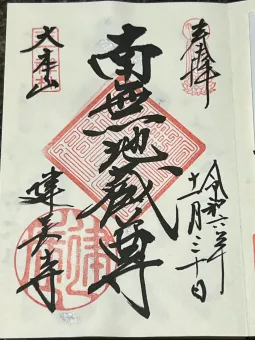 奉拝
令和六年
十一月三十日
南無地蔵尊
大本山
建長寺